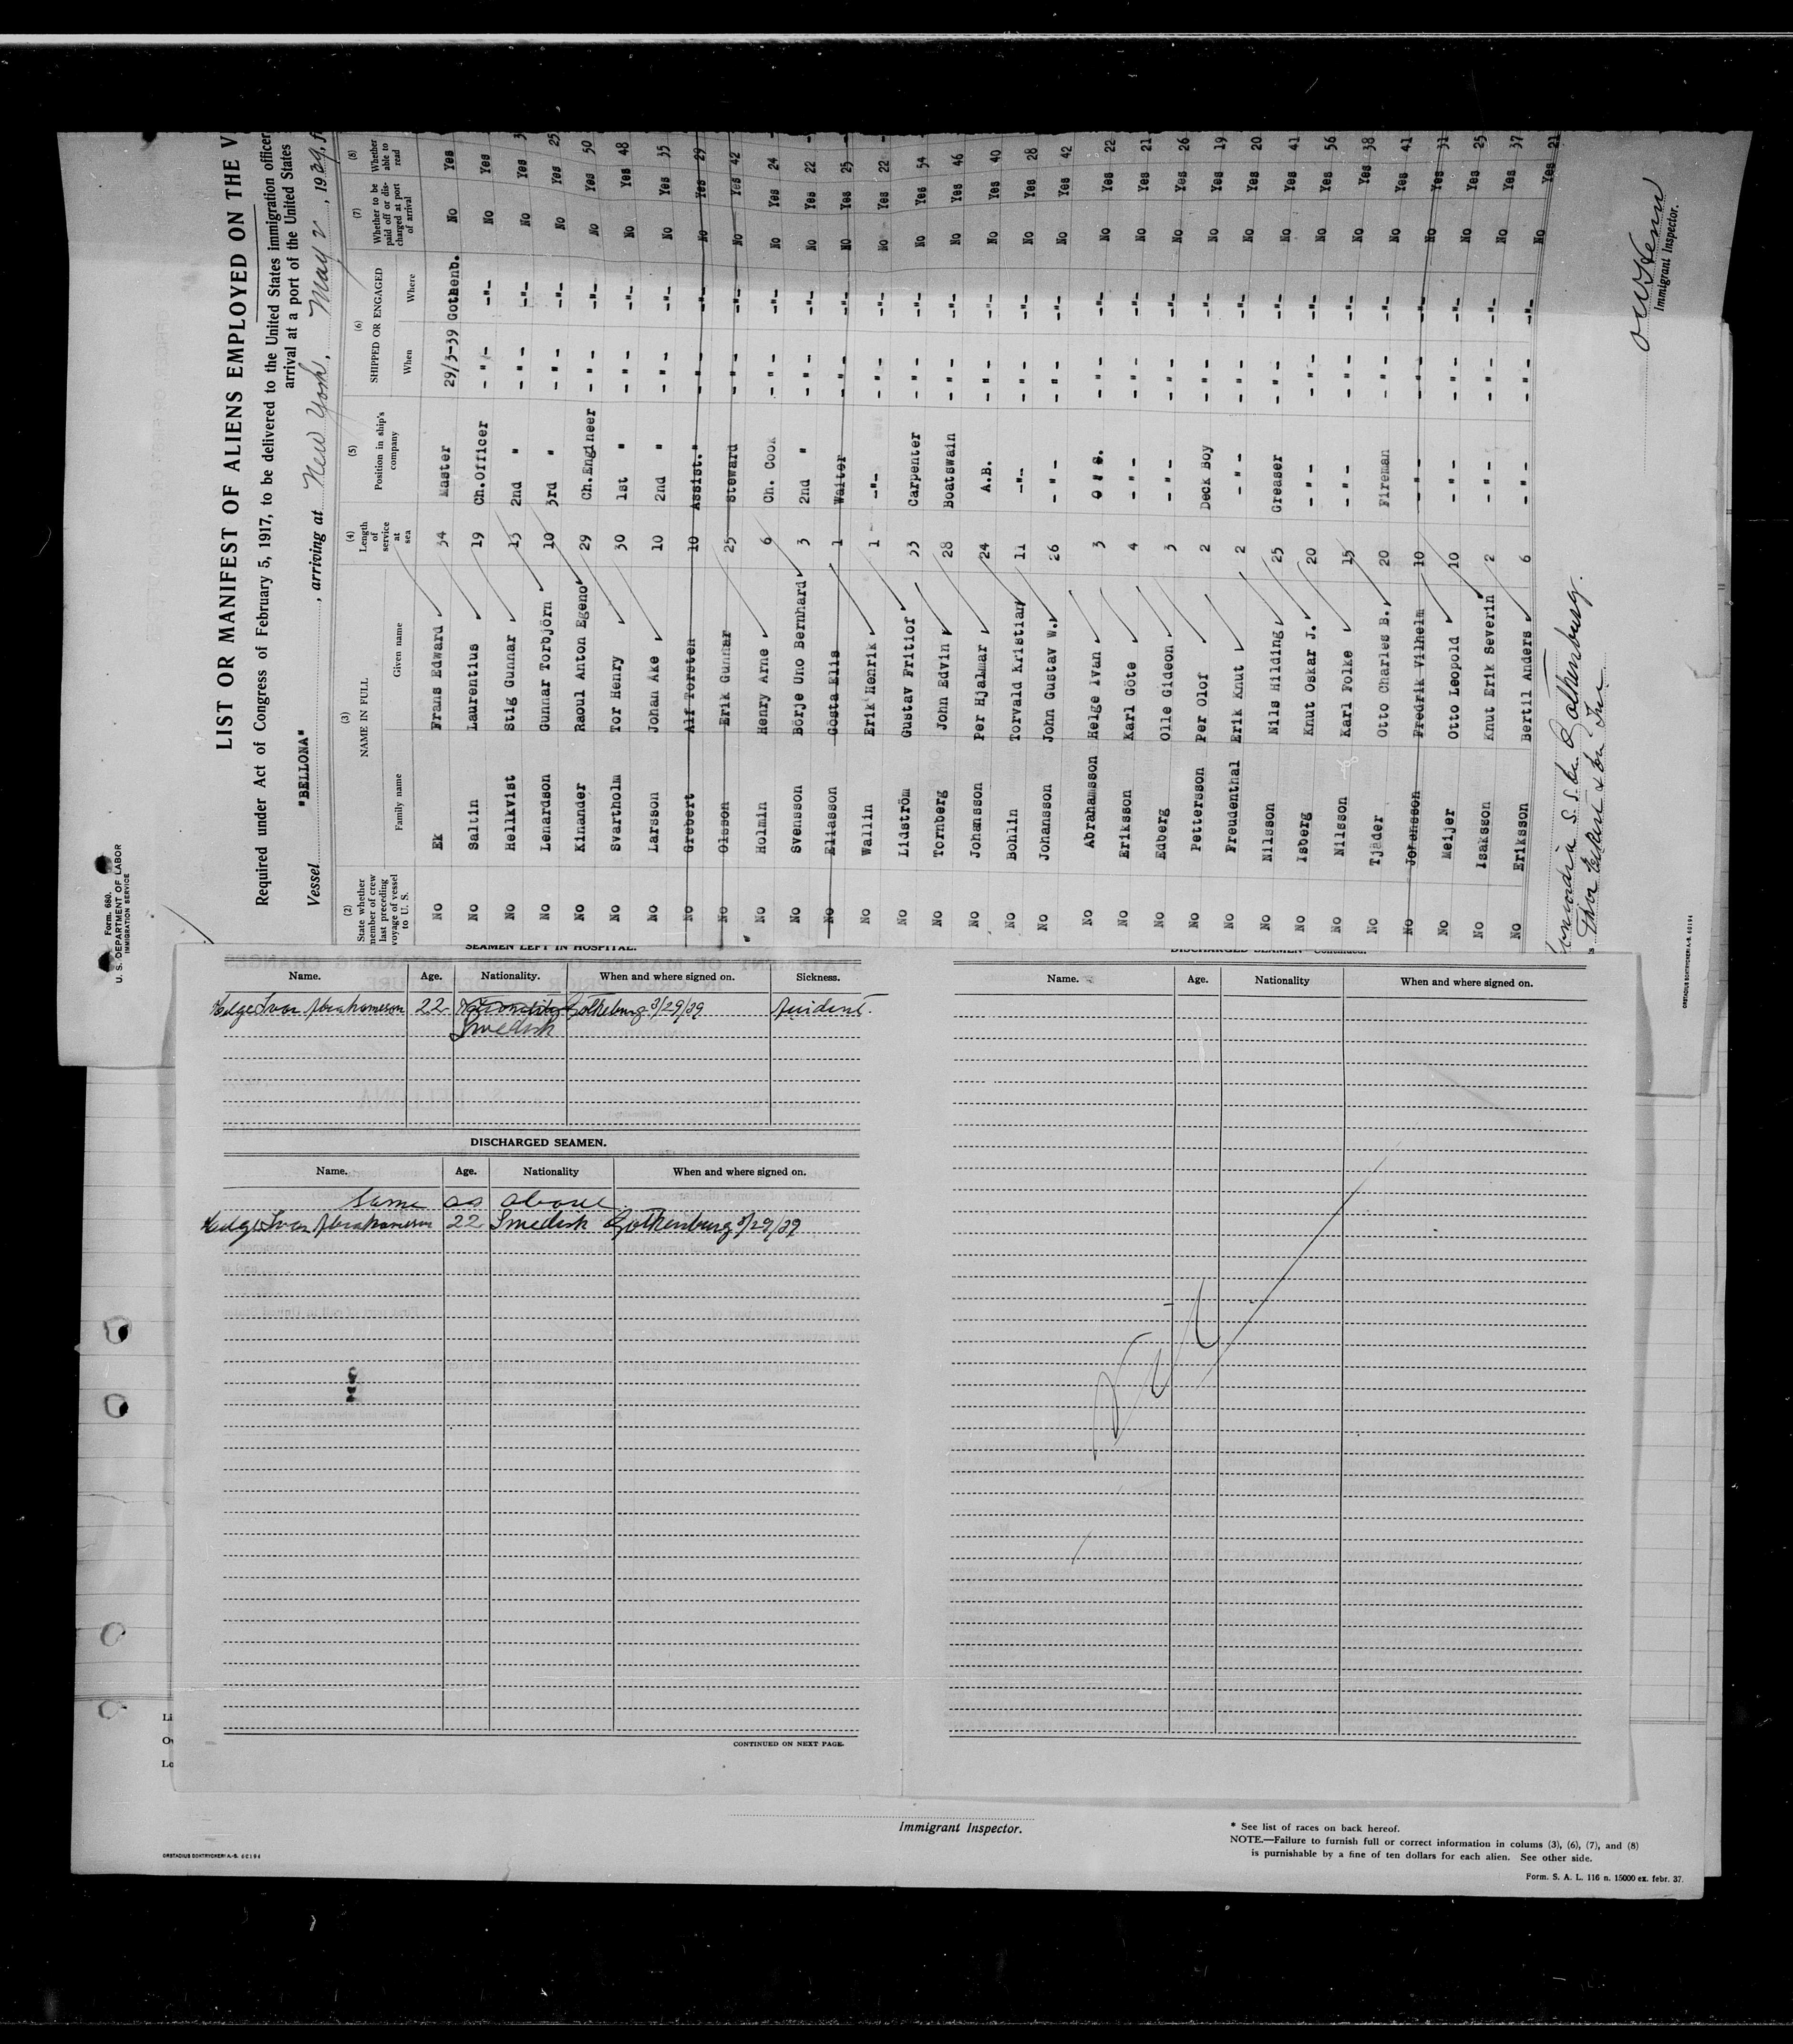 Form 680.
U. S. DEPARTMENT OF LABOR
IMMIGRATION SERVICE
LIST OR MANIFEST OF ALIENS EMPLOYED ON THE V
Required under Act of Congress of February 5, 1917, to be delivered to the United States immigration officer
arrival at a port of the United States
Vessel "BELLONA", arriving at New York, May 2, 1939, f
(2) State whether member of crew last preceding voyage of vessel to U. S.
(3) NAME IN FULL Family name Given name
(4) Length of service at sea
(5) Position in ship's company
(6) SHIPPED OR ENGAGED When Where
(7) Whether to be paid off or discharged at port of arrival
(8) Whether able to read
No Ek Frans Edward 34 Master 29/3-39 Gothenb. No Yes
No Saltin Laurentius 19 Ch.Officer - " - -"- No Yes
No Hellkvist Stig Gunnar 13 2nd " - " - -"- No Yes 3
No Lenardson Gunnar Torbjörn 10 3rd " - " - -"- No Yes 25
No Kinander Raoul Anton Egeno 29 Ch.Engineer - " - -"- No Yes 50
No Svartholm Tor Henry 30 1st " - " - -"- No Yes 48
No Larsson Johan Åke 10 2nd " - " - -"- No Yes 35
No Grebert Alf Torsten 10 Assist. " - " - -"- No Yes 29
No Olsson Erik Gunnar 25 Steward - " - -"- No Yes 42
No Holmin Henry Arne 6 Ch. Cook - " - -"- No Yes 24
No Svensson Börje Uno Bernhard 3 2nd " - " - -"- No Yes 22
No Eliasson Gösta Elis 1 Waiter - " - -"- No Yes 25
No Wallin Erik Henrik 1 -"- - " - -"- No Yes 22
No Lidström Gustav Fritiof 33 Carpenter - " - -"- No Yes 54
No Tornberg John Edvin 28 Boatswain - " - -"- No Yes 46
No Johansson Per Hjalmar 24 A.B. - " - -"- No Yes 40
No Bohlin Torvald Kristian 11 -"- - " - -"- No Yes 28
No Johansson John Gustav W. 26 - " - - " - -"- No Yes 42
No Abrahamsson Helge Ivan 3 O " S. - " - -"- No Yes 22
No Eriksson Karl Göte 4 - " - - " - -"- No Yes 21
No Edberg Olle Gideon 3 - " - - " - -"- No Yes 26
No Pettersson Per Olof 2 Deck Boy - " - -"- No Yes 19
No Freudenthal Erik Knut 2 - " - - " - -"- No Yes 20
No Nilsson Nils Hilding 25 Greaser - " - -"- No Yes 41
No Isberg Knut Oskar J. 20 - " - - " - -"- No Yes 56
No Nilsson Karl Folke 15 - " - - " - -"- No Yes 38
No Tjäder Otto Charles B. 20 Fireman - " - -"- No Yes 41
No Johansson Fredrik Vilhelm 10 - " - - " - -"- No Yes 31
No Meijer Otto Leopold 10 - " - - " - -"- No Yes 41
No Isaksson Knut Erik Severin 2 - " - - " - -"- No Yes 25
No Eriksson Bertil Anders 6 - " - - " - -"- No Yes 37
Yes 21
Gothenburg.
Immigrant Inspector.
SEAMEN LEFT IN HOSPITAL.
Name. Age. Nationality. When and where signed on. Sickness.
Helge Ivan Abrahamsson 22 Gothenburg 3/29/39 Accident.
Swedish
DISCHARGED SEAMEN.
Name. Age. Nationality When and where signed on.
Same as above
Helge Ivan Abrahamsson 22 Swedish Gothenburg 3/29/39
CONTINUED ON NEXT PAGE.
DISCHARGED SEAMEN—Continued.
Name. Age. Nationality When and where signed on.
Nil
Immigrant Inspector.
* See list of races on back hereof.
NOTE.—Failure to furnish full or correct information in colums (3), (6), (7), and (8)
is punishable by a fine of ten dollars for each alien. See other side.
Form. S. A. L. 116 n. 15000 ex. febr. 37.